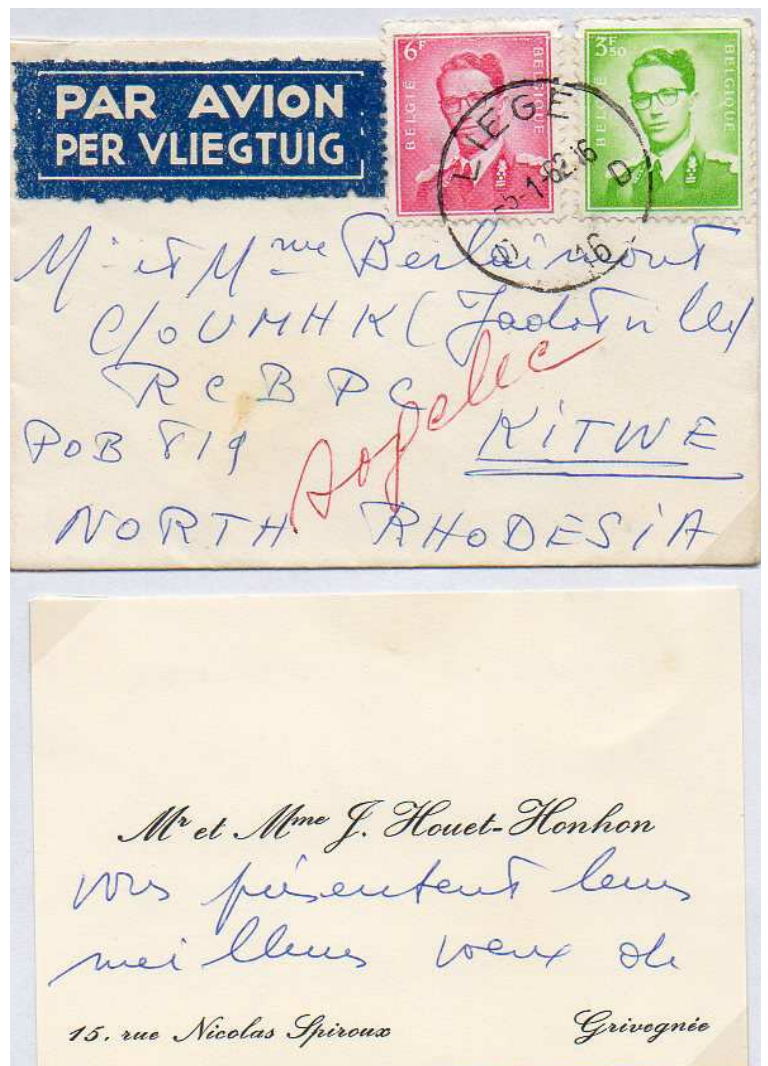 PAR AVION
PER VLIEGTUIG
6F
BELGIË
BELGIQUE
3F50
BELGIË
BELGIQUE
LIEGE
-1-62.16
D D
16
Mr et Mme Berlaimont
C/o UMHK (Jadotville)
RCBPC
POB 819
KiTWE
sogelec
NORTH RHODESiA
Mr et Mme J. Houet-Honhon
vous présentent leurs
meilleurs voeux de
15. rue Nicolas Spiroux
Grivegnée